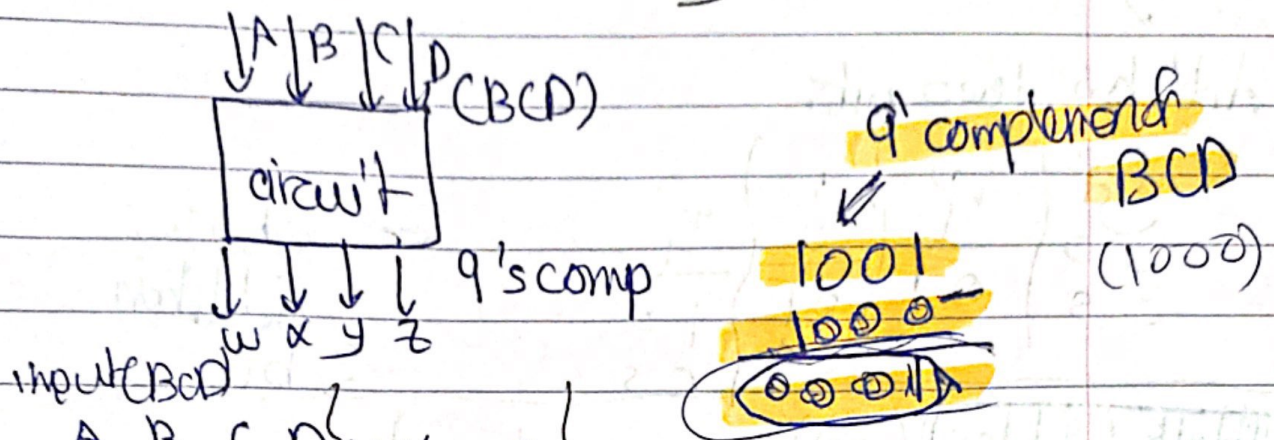 A B C D
(BCD)
circuit
9's comp
w x y z
input(BCD)
A B C D
9' complement
BCD
1001
(1000)
1000 -
0001